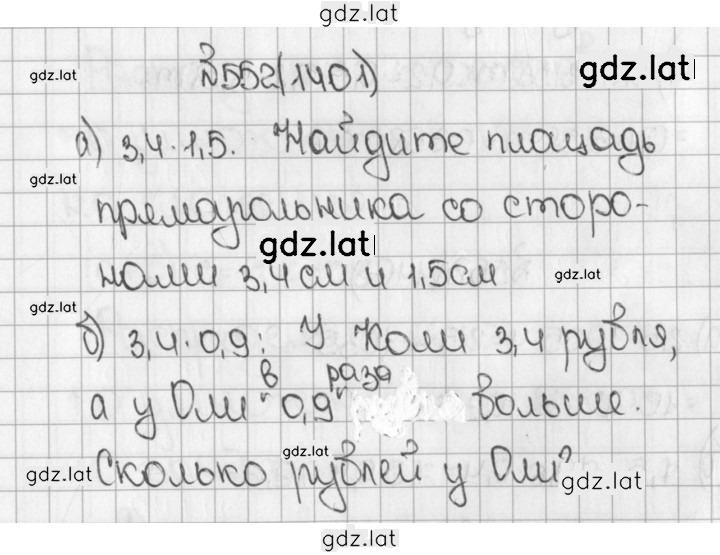 gdz.lat
№552(1401)
gdz.lat
gdz.lat
а) 3,4·1,5. Найдите площадь
gdz.lat
прямоугольника со сторо-
gdz.lat
нами 3,4 см и 1,5см
gdz.lat
gdz.lat
б) 3,4·0,9: У Коли 3,4 рубля,
в раза
а у Оли "0,9" больше.
gdz.lat
Сколько рублей у Оли?
gdz.lat
gdz.lat
gdz.lat